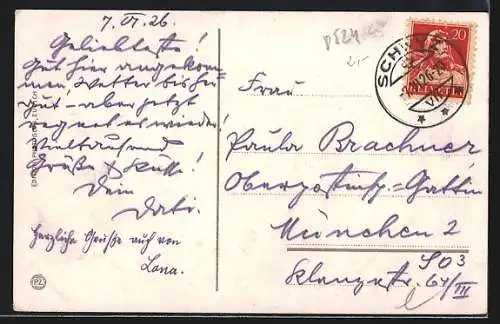 7. VI. 26.
Geliebteste!
Gut hier angekom-
men, Wetter bisher
gut - aber jetzt
regnet es wieder!
Vieltausend
Grüße & Küsse!
Dein
Dati.
Herzliche Grüsse auch von
Lona.
Frau
Paula Brachner
Oberpostinsp.=Gattin
München 2
SO3
Klenzestr. 64/III
20
HELVETIA
SCHW
PZ